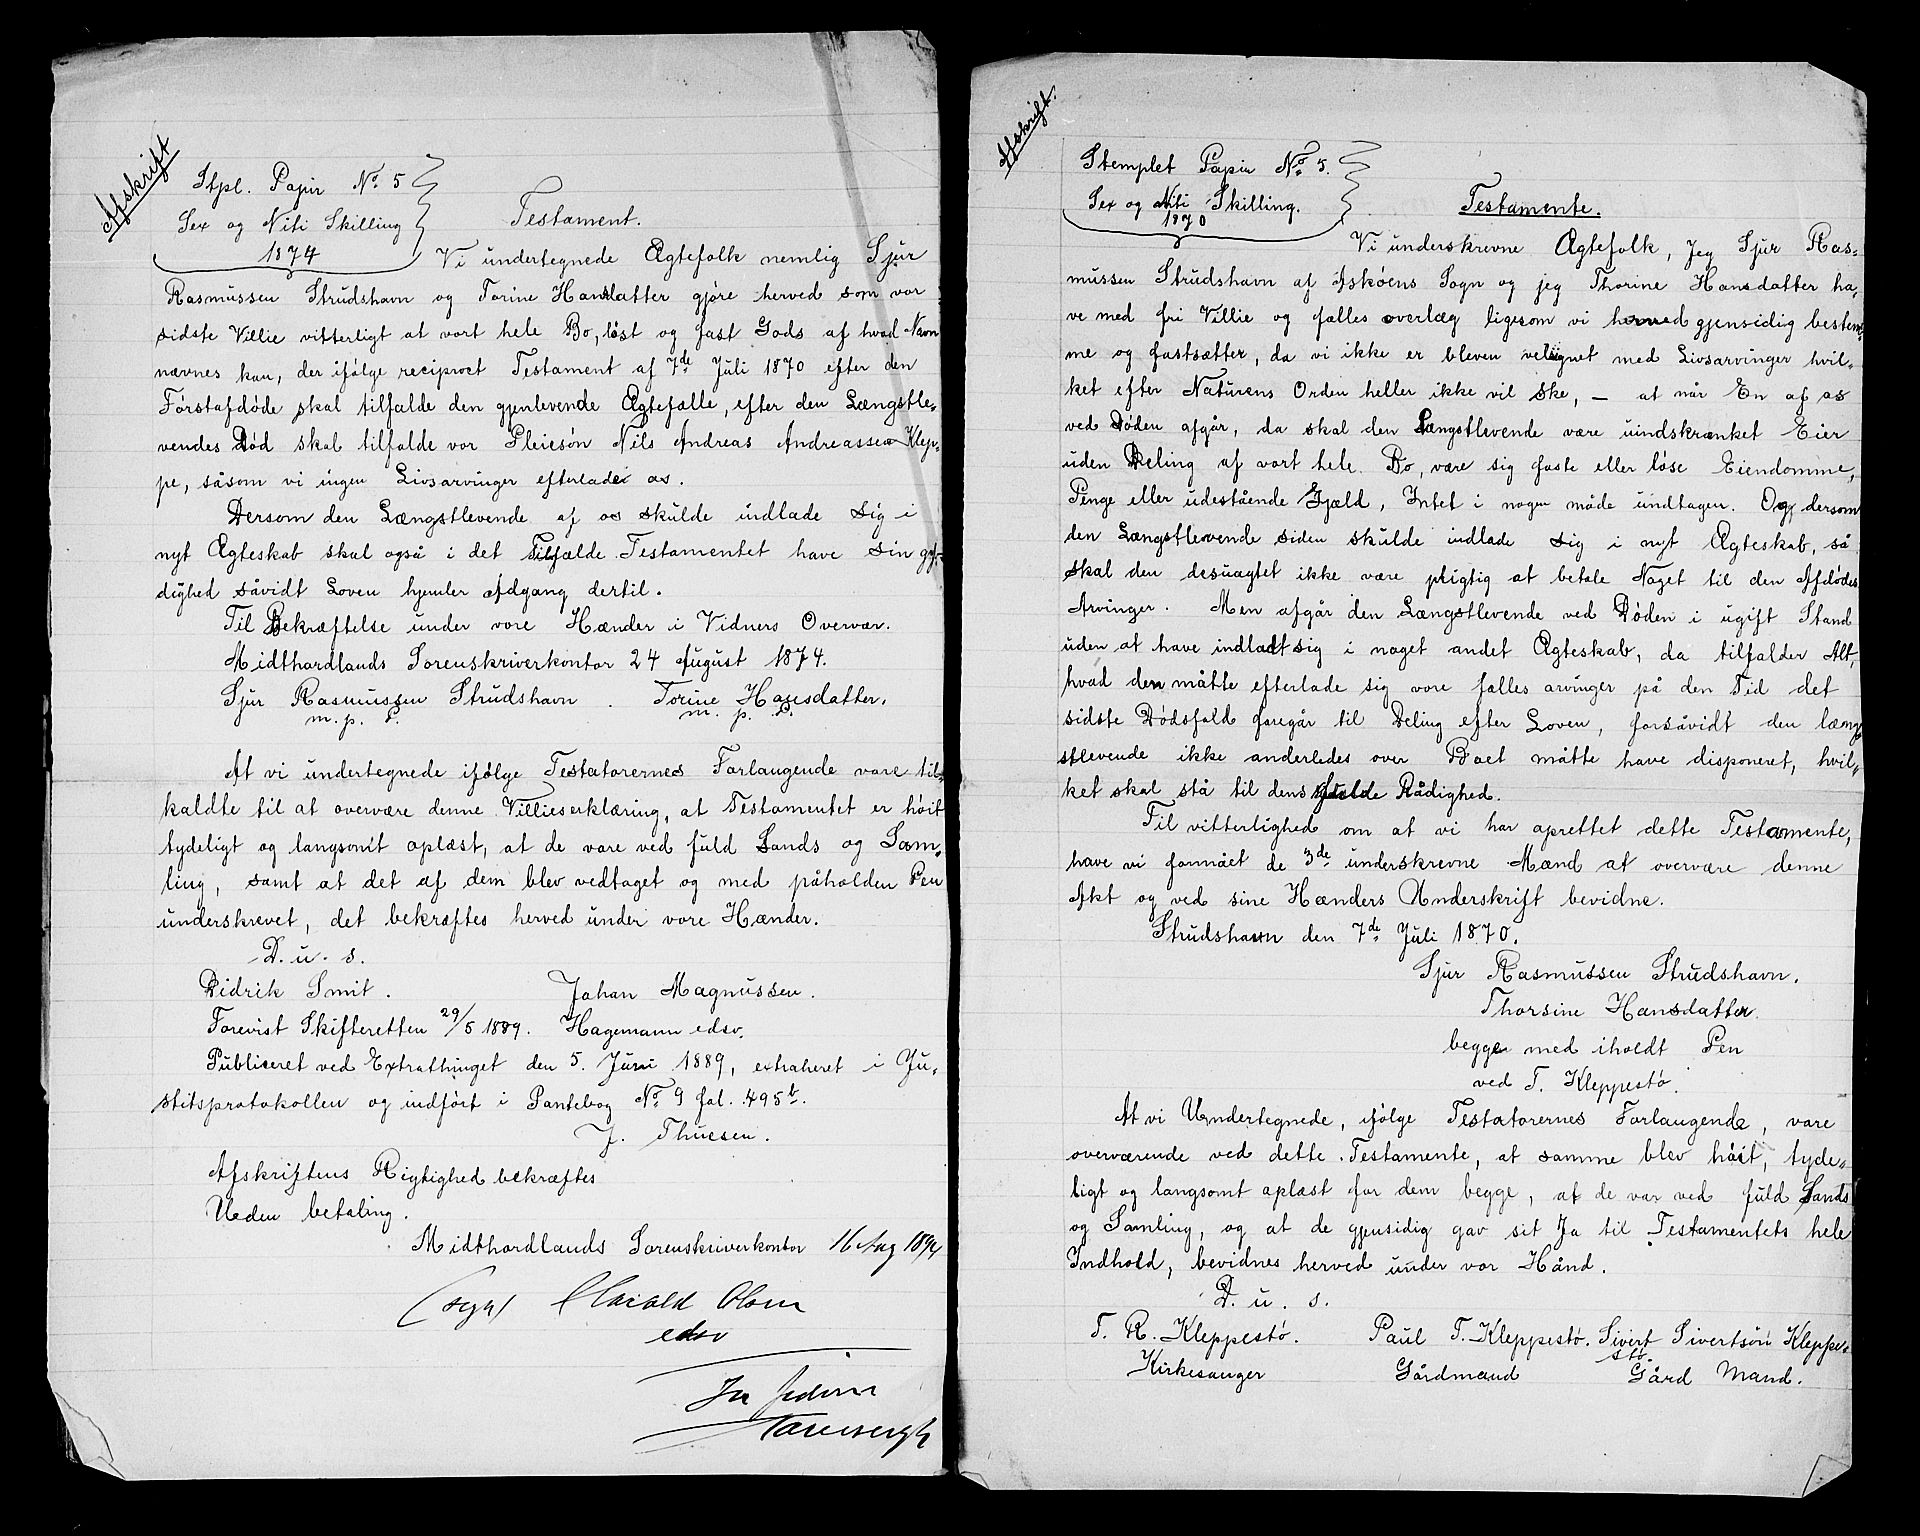 Afskrift
Stpl. Papir No. 5
Sex og Niti Skilling
1874
Testament.
Vi undertegnede Ægtefolk nemlig Sjur
Rasmussen Strudshavn og Torine Hansdatter gjøre herved som vor
sidste Villie vitterligt at vort hele Bo, løst og fast Gods af hvad Navn
nævnes kan, der ifølge reciproct Testament af 7de Juli 1870 efter den
Førstafdøde skal tilfalde den gjenlevende Ægtefælle, efter den Længstle-
vendes Død skal tilfalde vor Pleiesøn Nils Andreas Andreassen Klep-
pe, såsom vi ingen Livsarvinger efterlader os.
Dersom den Længstlevende af os skulde indlade sig i
nyt Ægteskab skal også i det Tilfælde Testamentet have sin gyl-
dighed såvidt Loven hjemler Adgang dertil.
Til Bekræftelse under vore Hænder i Vidners Overvær.
Midthordlands Sorenskriverkontor 24 August 1874.
Sjur Rasmussen Strudshavn . Torine Hansdatter.
m. p. P. m. p. P.
At vi undertegnede ifølge Testatorernes Forlangende vare til-
kaldte til at overvære denne Villieserklæring, at Testamentet er høit
tydeligt og langsomt oplæst, at de vare ved fuld Sands og Sam-
ling, samt at det af dem blev vedtaget og med påholden Pen
underskrevet, det bekræftes herved under vore Hænder.
D. u. s.
Didrik Smit. Johan Magnussen.
Forevist Skifteretten 29/5 1889. Hagemann edsv.
Publiceret ved Extrathinget den 5. Juni 1889, extraheret i Ju-
stitsprotokollen og indført i Pantebog No. 9 fol. 495b.
J. Thuesen.
Afskriftens Rigtighed bekræftes
Uden betaling.
Midthordlands Sorenskriverkontor 16 Aug 1894
(sign) Harald Olsen
edsv

Afskrift.
Stemplet Papir No. 5.
Sex og Niti Skilling.
1870
Testamente.
Vi underskrevne Ægtefolk, Jeg Sjur Ras-
mussen Strudshavn af Askøens Sogn og jeg Thorine Hansdatter ha-
ve med fri Villie og fælles overlæg ligesom vi herved gjensidig bestem-
me og fastsætter, da vi ikke er bleven velsignet med Livsarvinger hvil-
ket efter Naturens Orden heller ikke vil ske, – at når En af os
ved Døden afgår, da skal den Længstlevende være uindskrænket Eier
uden Deling af vort hele Bo, være sig faste eller løse Eiendomme,
Penge eller udestående Gjæld, Intet i nogen måde undtagen. Og dersom
den Længstlevende siden skulde indlade sig i nyt Ægteskab, så
skal den desuagtet ikke være pligtig at betale Noget til den Afdødes
Arvinger. Men afgår den Længstlevende ved Døden i ugift Stand
uden at have indladt sig i noget andet Ægteskab, da tilfalder Alt,
hvad den måtte efterlade sig vore fælles arvinger på den Tid det
sidste Dødsfald foregår til Deling efter Loven, forsåvidt den læng-
stlevende ikke anderledes over Boet måtte have disponeret, hvil-
ket skal stå til dens fulde Rådighed.
Til vitterlighed om at vi har oprettet dette Testamente,
have vi formået de 3de underskrevne Mænd at overvære denne
Akt og ved sine Hænders Underskrift bevidne.
Strudshavn den 7de Juli 1870.
Sjur Rasmussen Strudshavn.
Thorsine Hansdatter.
begge med iholdt Pen
ved T. Kleppestø.
At vi Undertegnede, ifølge Testatorernes Forlangende, vare
overværende ved dette Testamente, at samme blev høit, tyde-
ligt og langsomt oplæst for dem begge, at de var ved fuld Sands
og Samling, og at de gjensidig gav sit Ja til Testamentets hele
Indhold, bevidnes herved under vor Hånd.
D. u. s.
T. R. Kleppestø. Paul T. Kleppestø. Sivert Sivertsön Kleppe-
stø.
Kirkesanger Gårdmand Gård Mand.